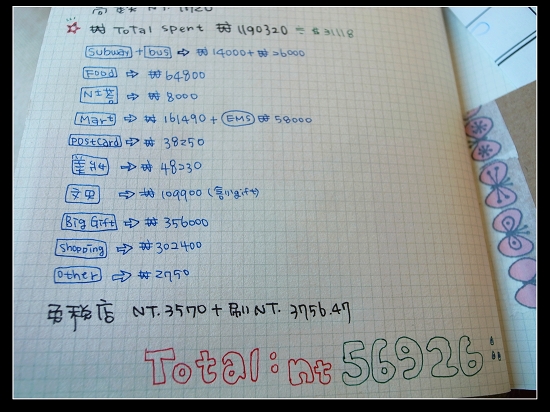 ☆ ₩ Total spent ₩ 1190320 = $ 31118
subway + bus ⇒ ₩ 14000 + ₩ 26000
Food ⇒ ₩ 64800
⇒ ₩ 8000
Mart ⇒ ₩ 161490 + EMS ₩ 58000
postcard ⇒ ₩ 38250
美妝 ⇒ ₩ 48230
文具 ⇒ ₩ 109900 (含小gift)
Big Gift ⇒ ₩ 356000
shopping ⇒ ₩ 302400
other ⇒ ₩ 2750
免稅店 NT. 3570 + 刷 NT. 3756.47
Total: nt 56926